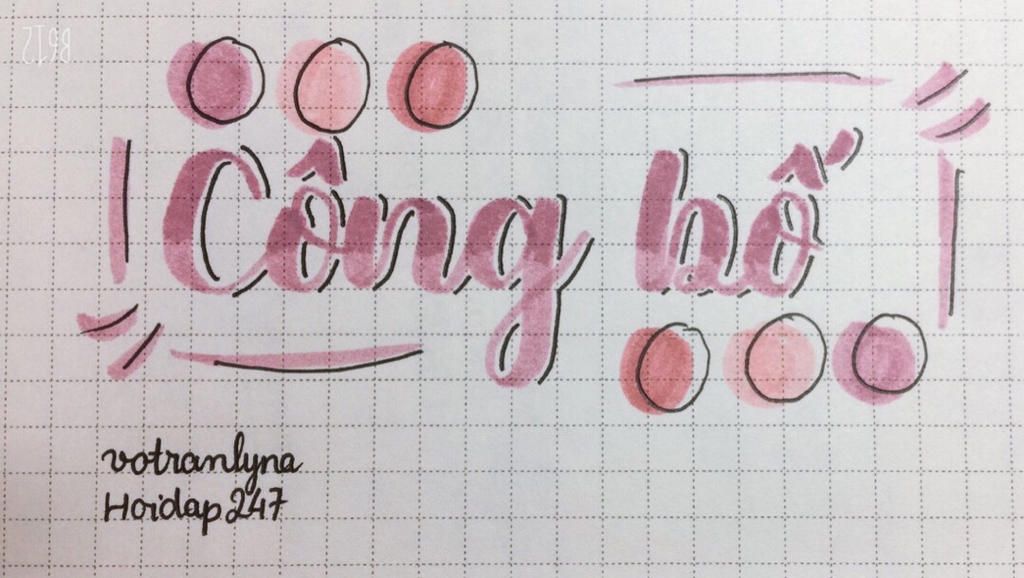 B612
Công bố
votranlyna
Hoidap247